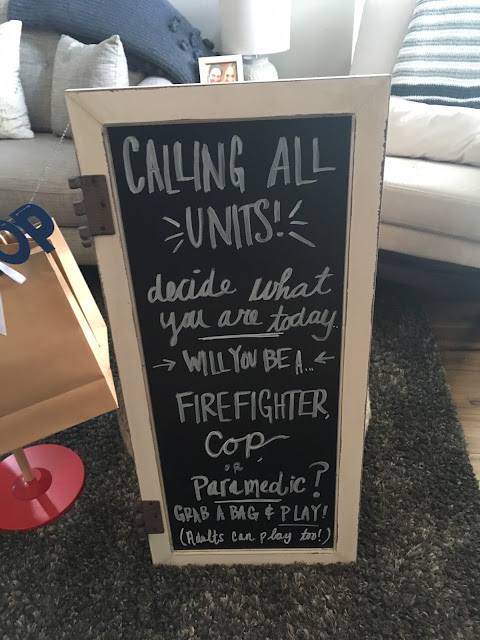 OP
CALLING ALL
UNITS!
decide what
you are today..
→ WILL YOU BE A... ←
FIREFIGHTER,
COP,
OR
Paramedic?
GRAB A BAG & PLAY!
(Adults can play too!)